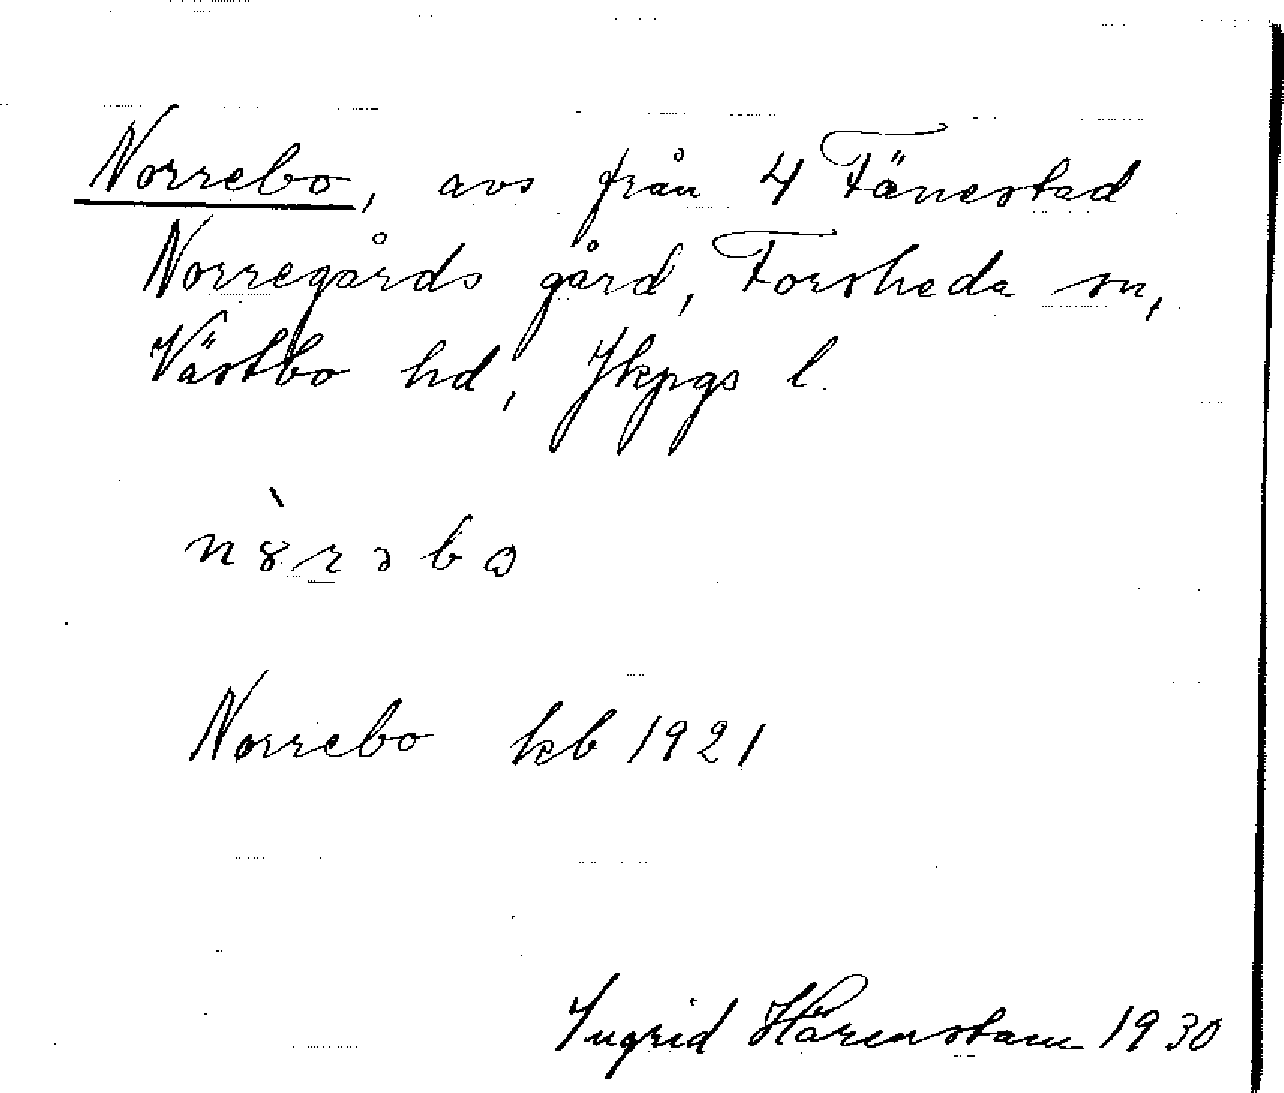 Norrebo, avs från 4 Tånestad
Norregårds gård, Forsheda sn,
Västbo hd, Jkpgs l.
Norrebo kb 1921
Ingrid Härenstam 1930